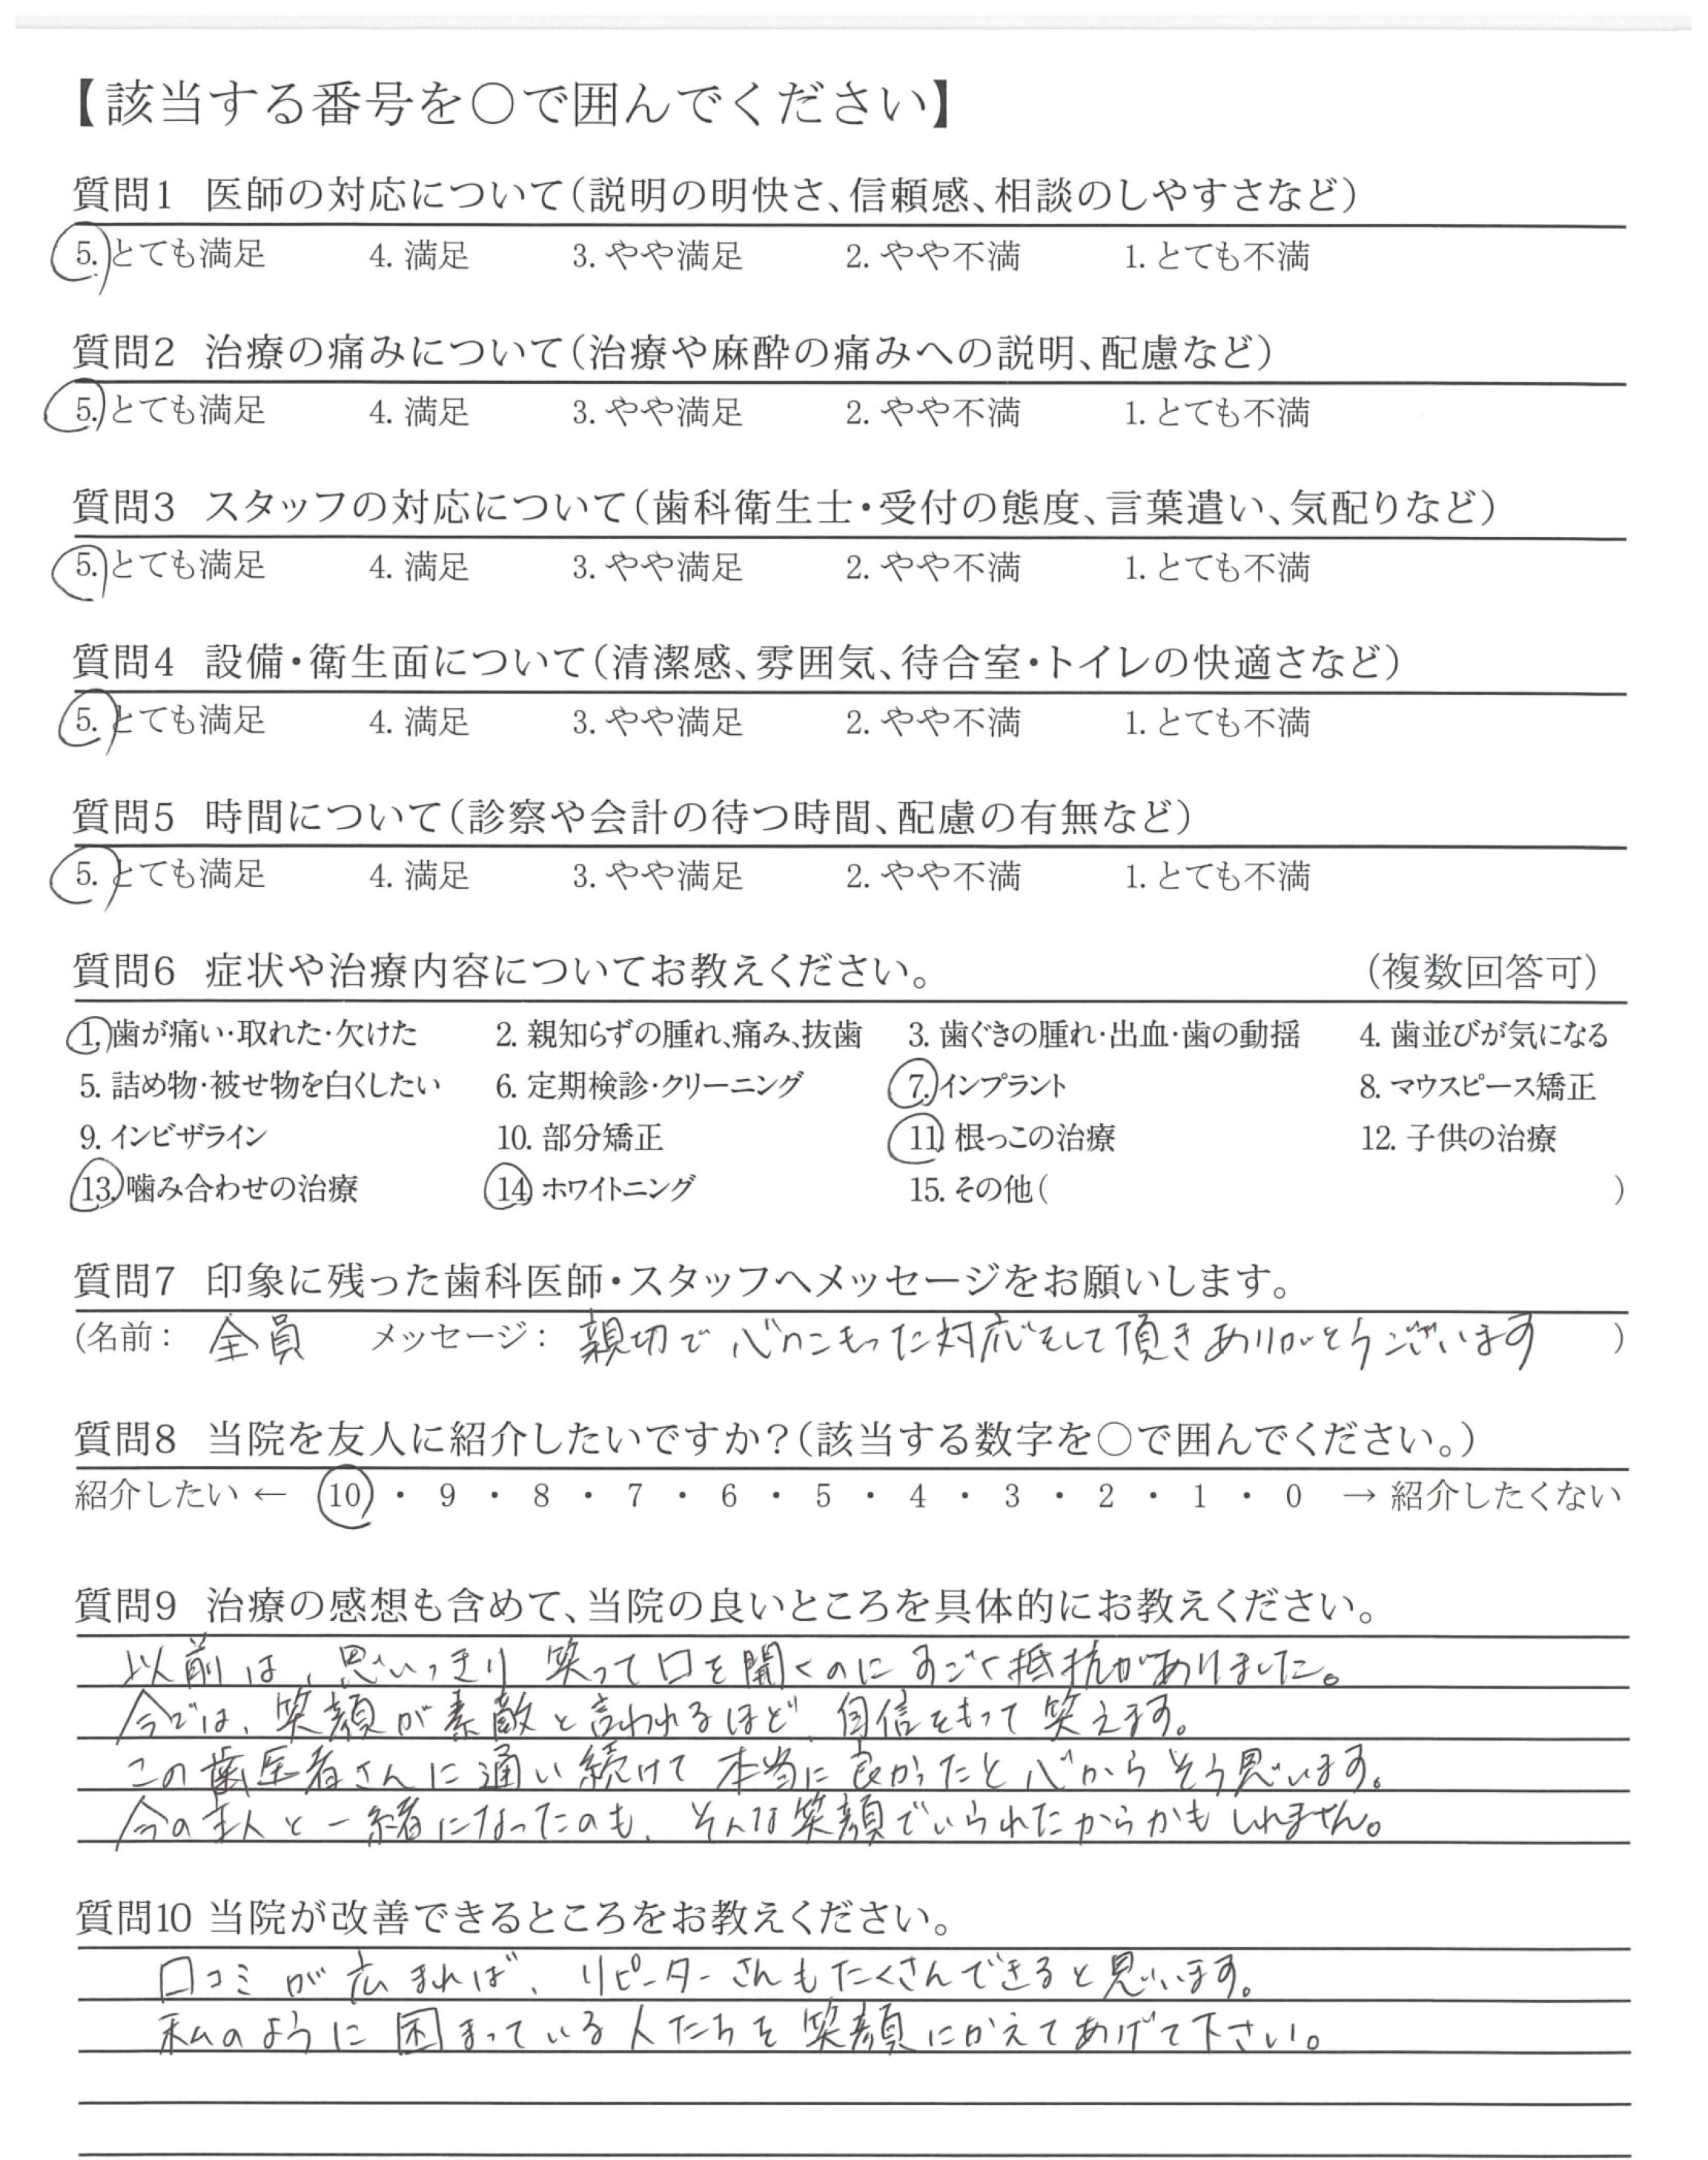 【該当する番号を○で囲んでください】
質問1 医師の対応について(説明の明快さ、信頼感、相談のしやすさなど)
5. とても満足 4. 満足 3. やや満足 2. やや不満 1. とても不満
質問2 治療の痛みについて(治療や麻酔の痛みへの説明、配慮など)
5. とても満足 4. 満足 3. やや満足 2. やや不満 1. とても不満
質問3 スタッフの対応について(歯科衛生士・受付の態度、言葉遣い、気配りなど)
5. とても満足 4. 満足 3. やや満足 2. やや不満 1. とても不満
質問4 設備・衛生面について(清潔感、雰囲気、待合室・トイレの快適さなど)
5. とても満足 4. 満足 3. やや満足 2. やや不満 1. とても不満
質問5 時間について(診察や会計の待つ時間、配慮の有無など)
5. とても満足 4. 満足 3. やや満足 2. やや不満 1. とても不満
質問6 症状や治療内容についてお教えください。 (複数回答可)
1. 歯が痛い・取れた・欠けた 2. 親知らずの腫れ、痛み、抜歯 3. 歯ぐきの腫れ・出血・歯の動揺 4. 歯並びが気になる
5. 詰め物・被せ物を白くしたい 6. 定期検診・クリーニング 7. インプラント 8. マウスピース矯正
9. インビザライン 10. 部分矯正 11. 根っこの治療 12. 子供の治療
13. 噛み合わせの治療 14. ホワイトニング 15. その他( )
質問7 印象に残った歯科医師・スタッフへメッセージをお願いします。
(名前: 全員 メッセージ: 親切で心のこもった対応をして頂きありがとうございます )
質問8 当院を友人に紹介したいですか?(該当する数字を○で囲んでください。)
紹介したい ← 10 ・ 9 ・ 8 ・ 7 ・ 6 ・ 5 ・ 4 ・ 3 ・ 2 ・ 1 ・ 0 → 紹介したくない
質問9 治療の感想も含めて、当院の良いところを具体的にお教えください。
以前は、思いっきり笑って口を開くのにすごく抵抗がありました。
今では、笑顔が素敵と言われるほど、自信をもって笑えます。
この歯医者さんに通い続けて本当に良かったと心からそう思います。
今の主人と一緒になったのも、そんな笑顔でいられたからかもしれません。
質問10 当院が改善できるところをお教えください。
口コミが広まれば、リピーターさんもたくさんできると思います。
私のように困まっている人たちを笑顔にかえてあげて下さい。